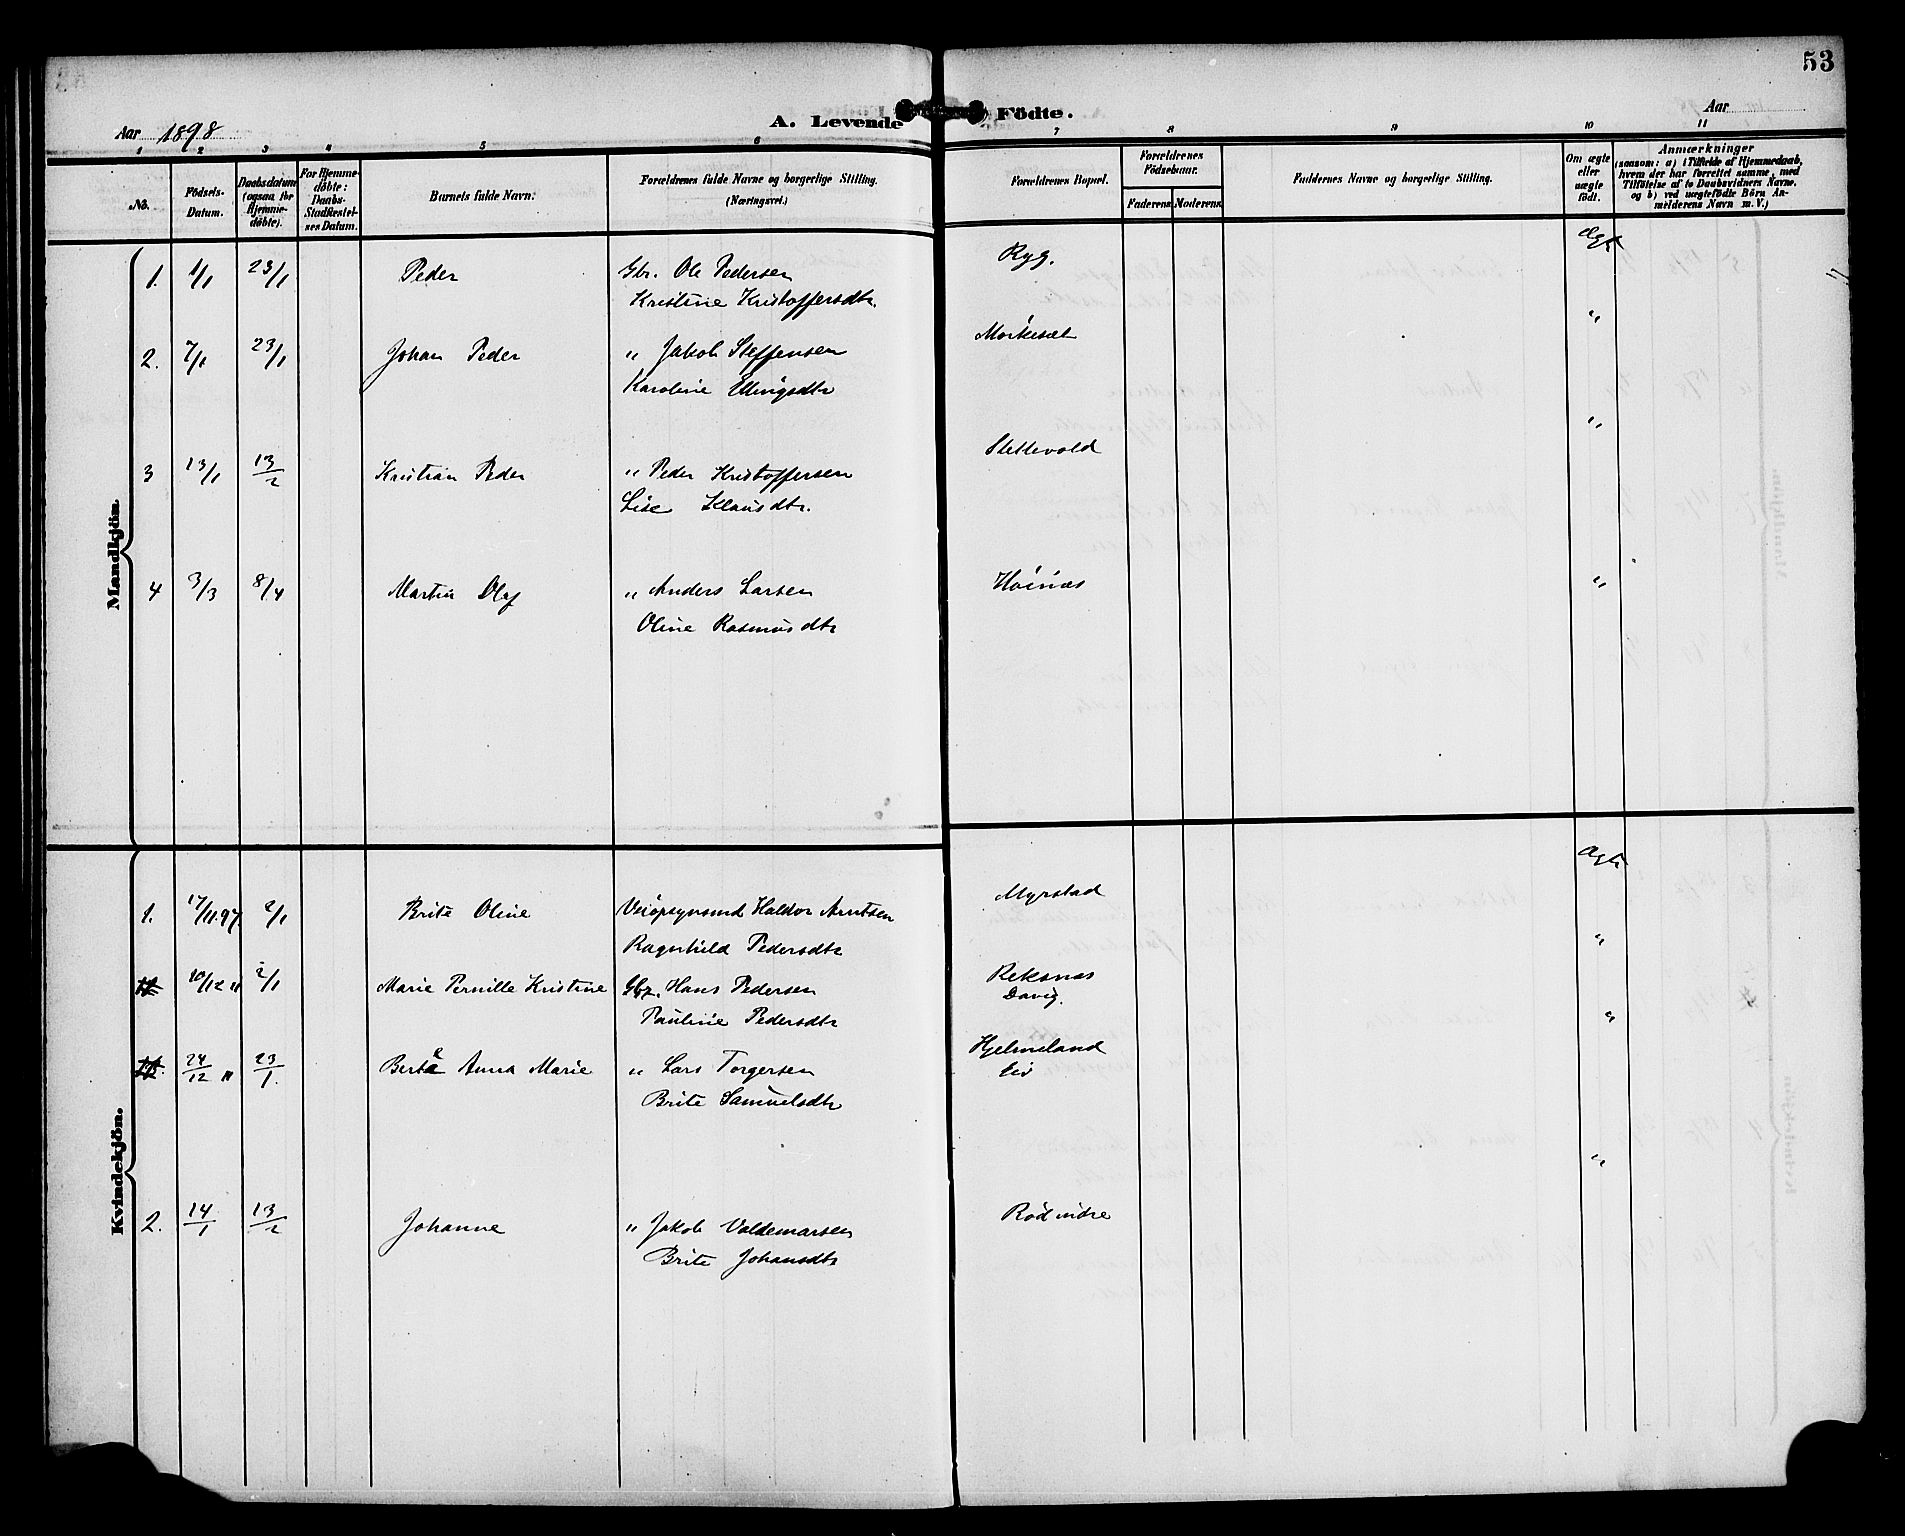 53
Aar 1898
A. Levende Födte.
Aar
1 2 3 4 5 6 7 8 9 10 11
No.
Födsels-Datum.
Daabsdatum (ogsaa for Hjemme-döbte).
For Hjemme-döbte: Daabs-Stadfæstel-ses Datum.
Barnets fulde Navn.
Forældrenes fulde Navne og borgerlige Stilling.
(Næringsvei.)
Forældrenes Bopæl.
Forældrenes Födselsaar.
Faderens Moderens
Faddernes Navne og borgerlige Stilling.
Om ægte eller uægte födt.
Anmærkninger
(saasom: a) i Tilfælde af Hjemmedaab,
hvem der har forrettet samme, med
Tilföielse af to Daabsvidners Navne,
og b) ved uægtefödte Börn An-
melderens Navn m. V.)
Mandkjön.
1. 1/1 23/1 Peder Gbr. Ole Pedersen Ryg. Ægte
Kristine Kristoffersdtr.
2. 7/1 23/1 Johan Peder " Jakob Steffensen Morkesæt "
Karoline Ellingsdtr
3 13/1 13/2 Kristian Peder " Peder Kristoffersen Slettevold "
Lise Klausdtr.
4 3/3 8/4 Martin Olaf " Anders Larsen Hoinæs "
Oline Rasmusdtr
Kvindekjön.
1. 17/11.97. 2/1 Brite Oline Veiopsynsmd Haldor Arntsen Myrstad Ægte
Ragnhild Pedersdtr
10/12 " 2/1 Marie Pernille Kristine Gbr. Hans Pedersen Reksnæs "
Pauline Pedersdtr Davig.
24/12 " 23/1. Berte Anna Marie " Lars Torgersen Hjelmeland "
Brite Samuelsdtr Eid
2. 14/1 13/2 Johanne " Jakob Valdemarsen Rød indre "
Brite Johansdtr